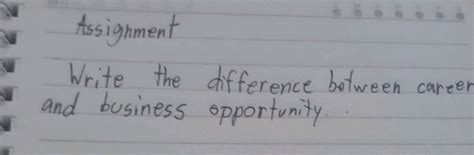 Assignment
Write the difference between career
and business opportunity..